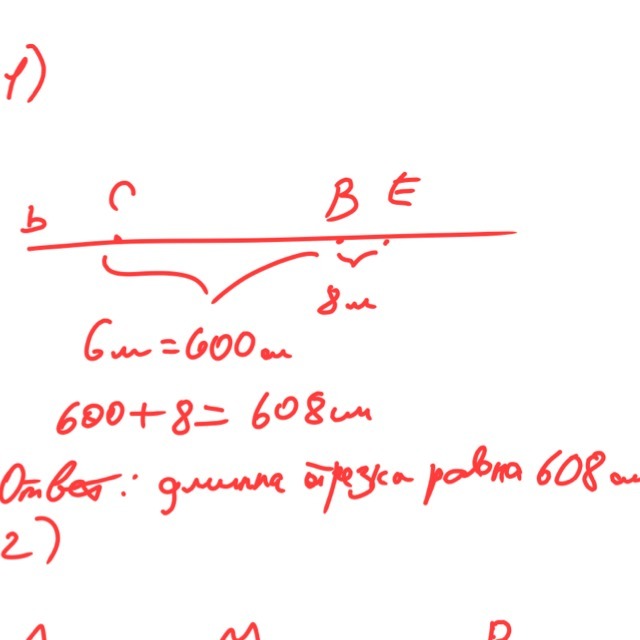 1)
C B E
b
8м
6м = 600см
600+8= 608см
Ответ: длинна отрезка равна 608см
2)
A M B